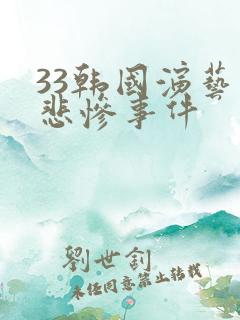 33韩国演藝
悲慘事件
劉世釗
未经同意禁止转载